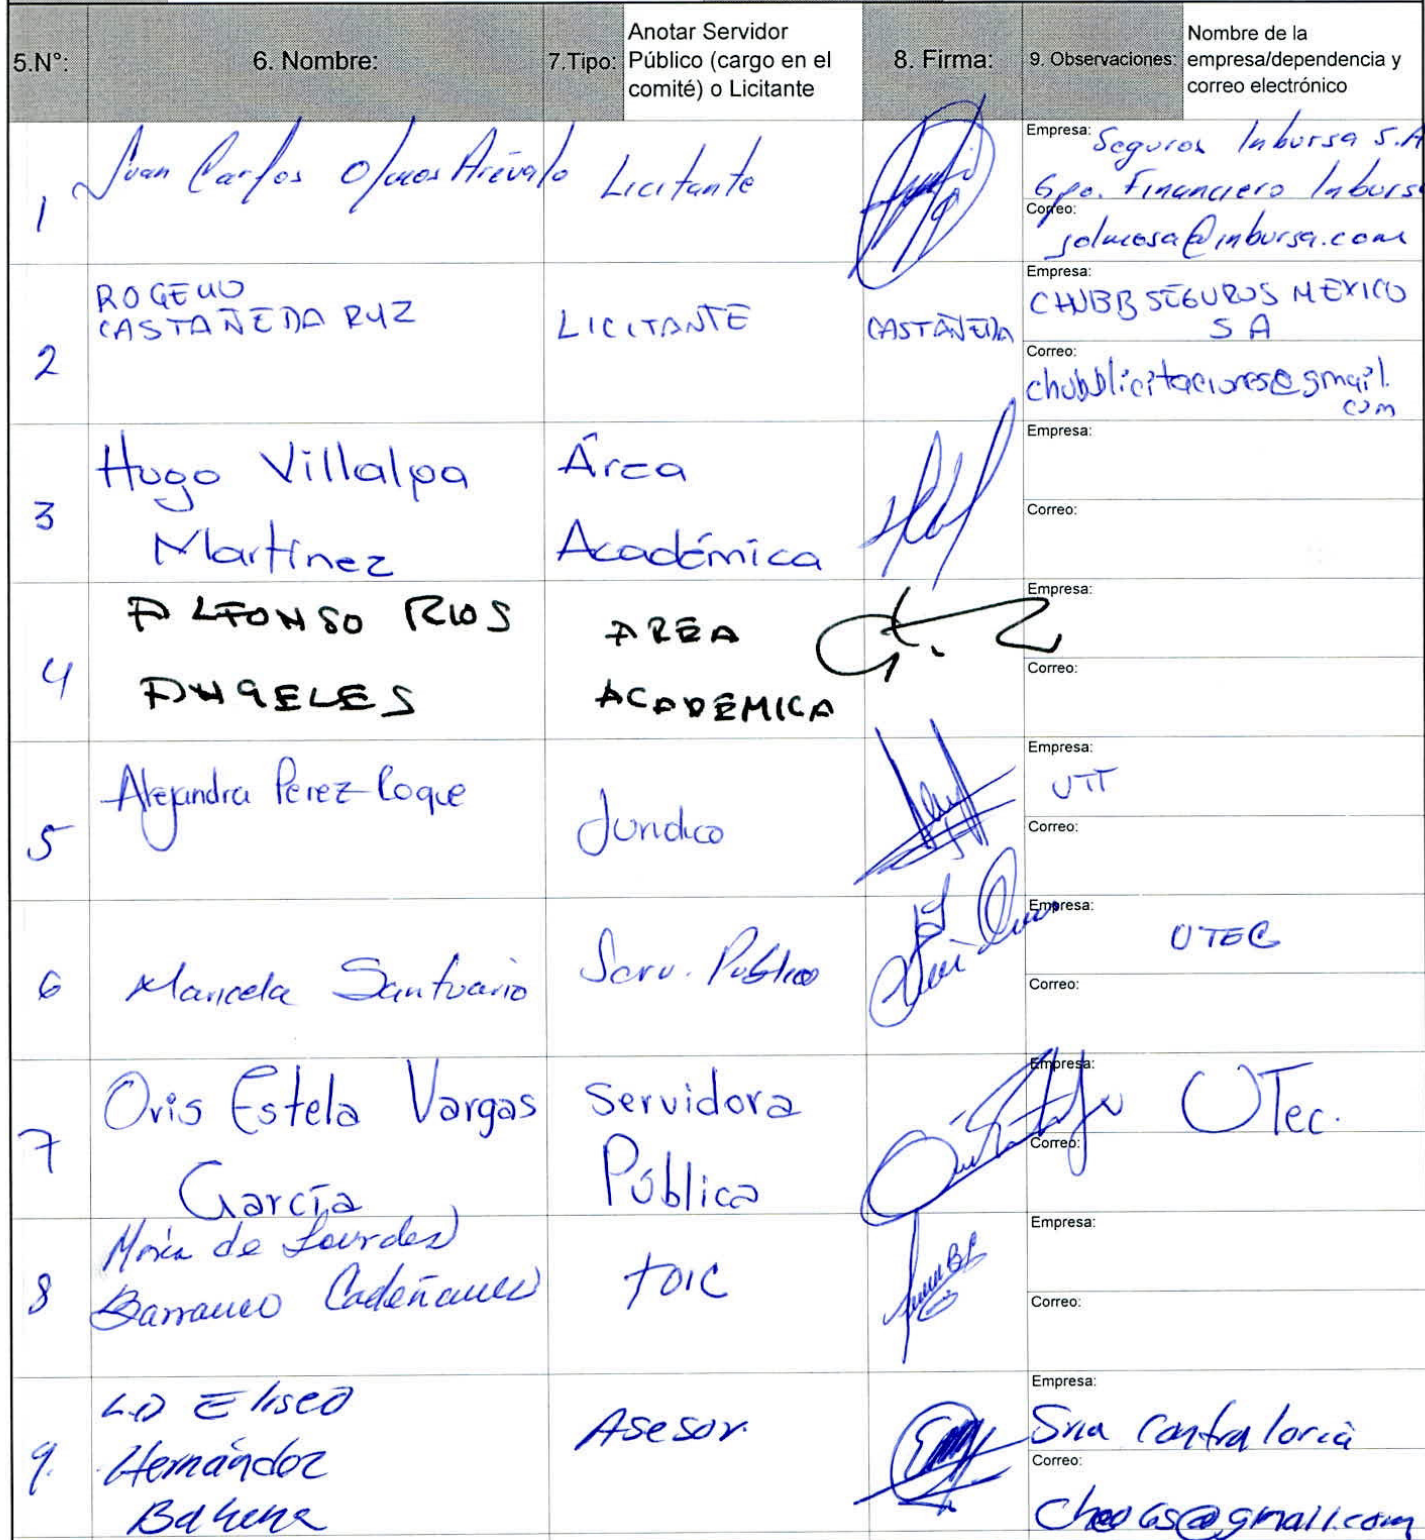 5.N°:
6. Nombre:
7.Tipo:
Anotar Servidor
Público (cargo en el
comité) o Licitante
8. Firma:
9. Observaciones:
Nombre de la
empresa/dependencia y
correo electrónico
1
Juan Carlos Olmos Arévalo
Licitante
Empresa: Seguros Inbursa S.A
Gpo. Financiero Inburs
Correo:
jolmosa@inbursa.com
2
ROGELIO
CASTAÑEDA RUZ
LICITANTE
CASTAÑEDA
Empresa:
CHUBB SEGUROS MEXICO
S A
Correo:
chubblicitaciones@gmail.
com
3
Hugo Villalpa
Martínez
Área
Académica
Empresa:
Correo:
4
ALFONSO RIOS
ANGELES
AREA
ACADÉMICA
Empresa:
Correo:
5
Alejandra Perez Roque
Juridico
Empresa:
UTT
Correo:
6
Maricela Santuario
Serv. Publico
Empresa:
UTEC
Correo:
7
Oris Estela Vargas
García
Servidora
Pública
Empresa:
UTec.
Correo:
8
María de Lourdes
Barranco
TOIC
Empresa:
Correo:
9.
L.D Eliseo
Hernández
Bahena
Asesor.
Empresa:
Sria Contraloria
Correo:
@gmail.com